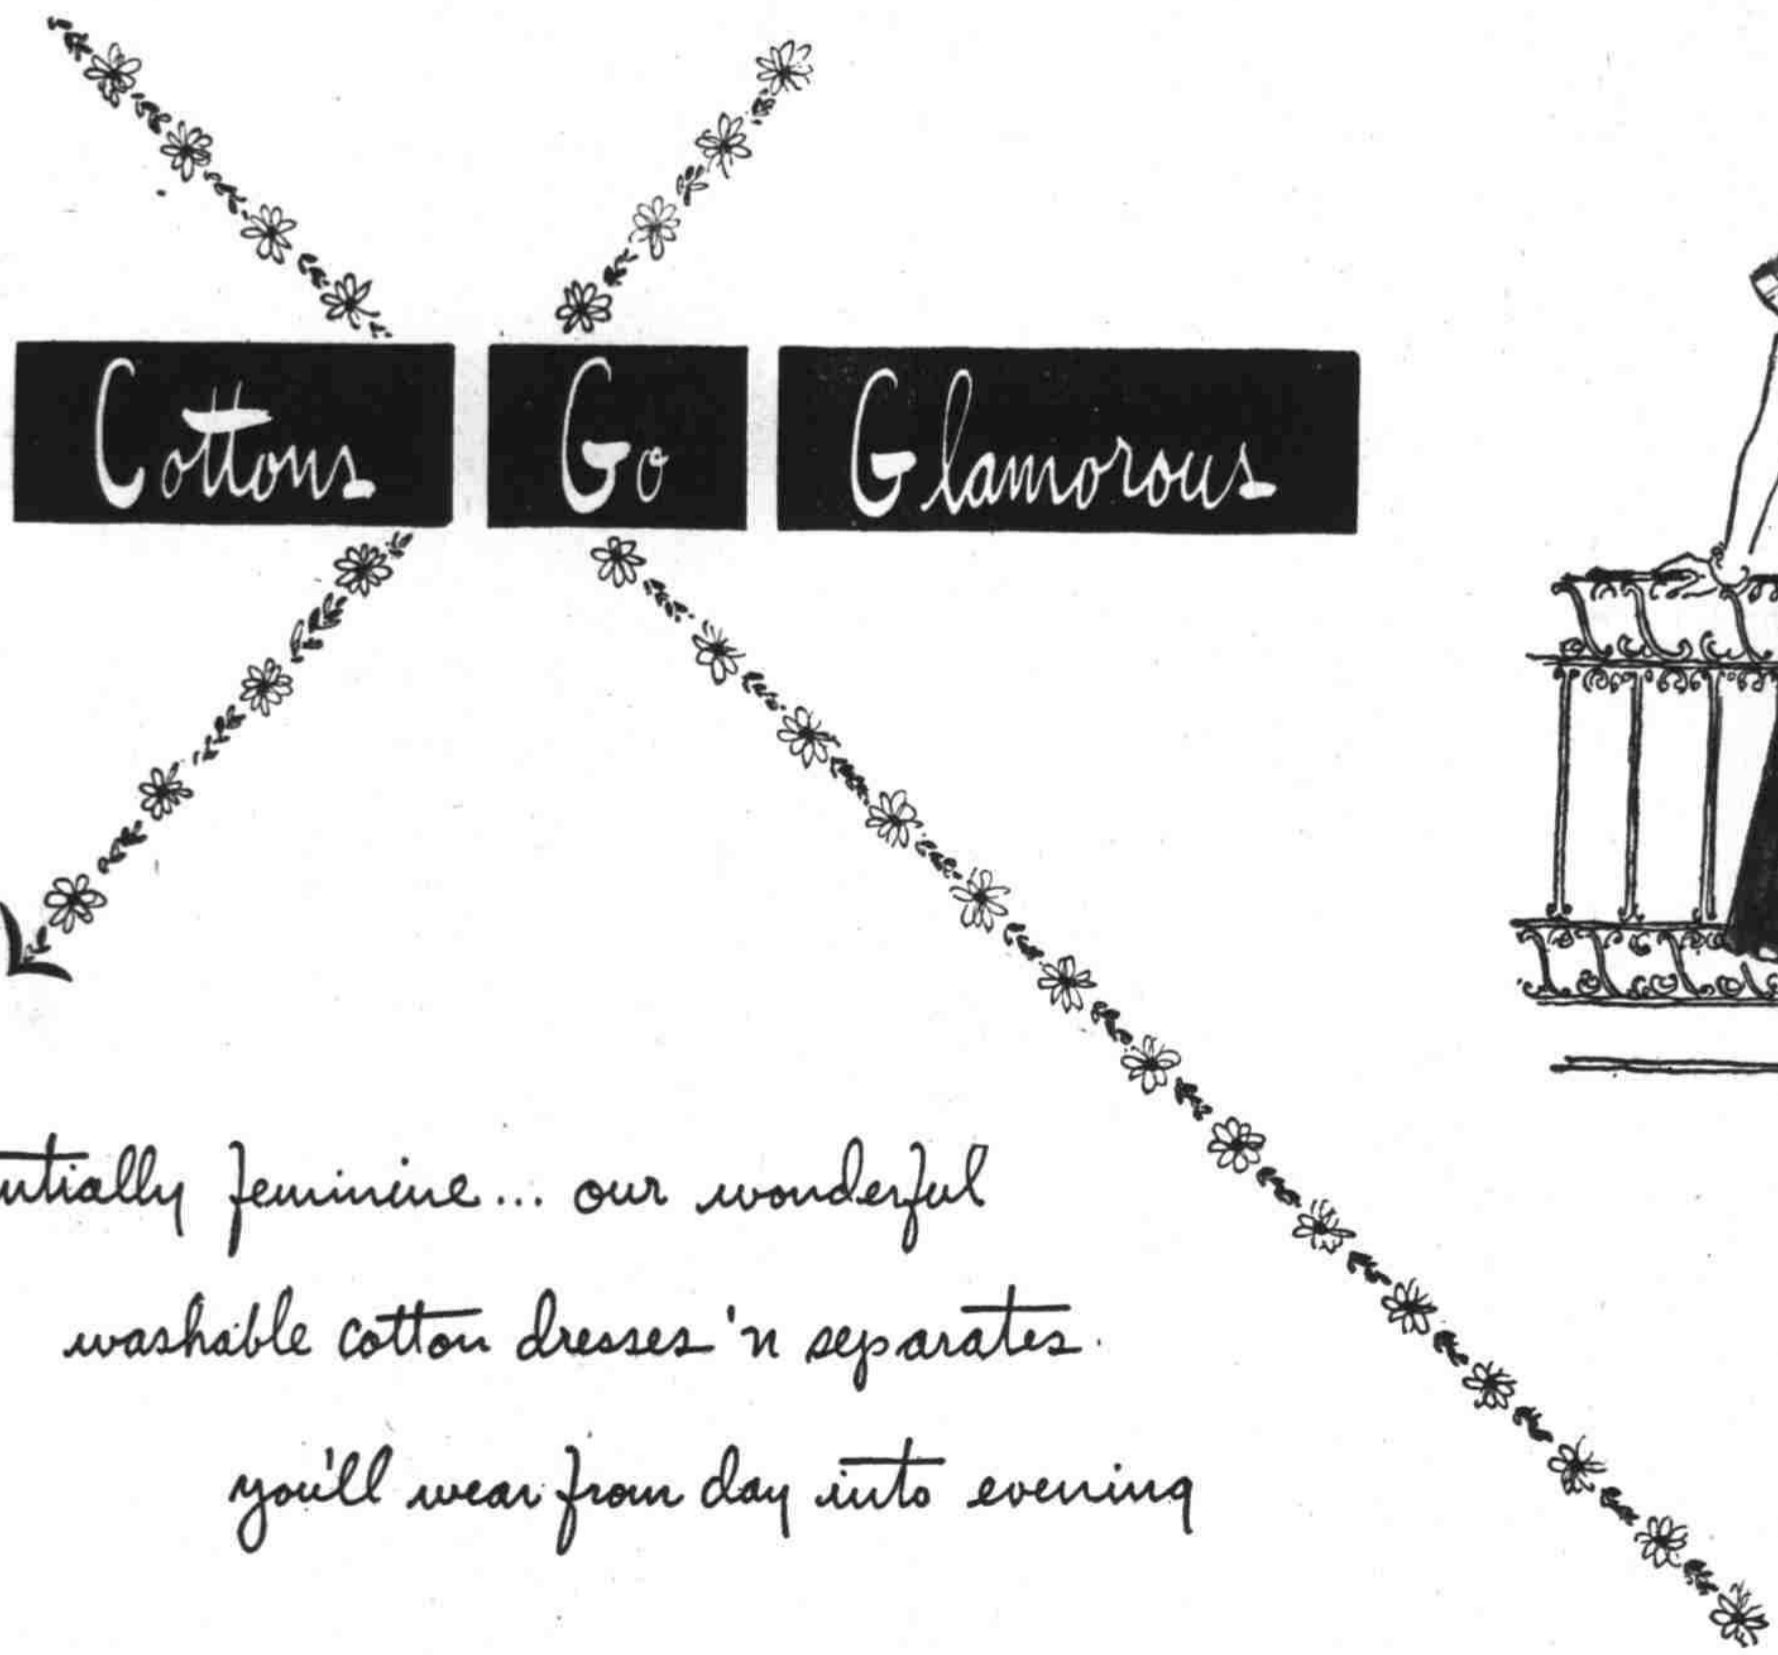 Cottons Go Glamorous
ntially feminine... our wonderful
washable cotton dresses 'n separates.
you'll wear from day into evening